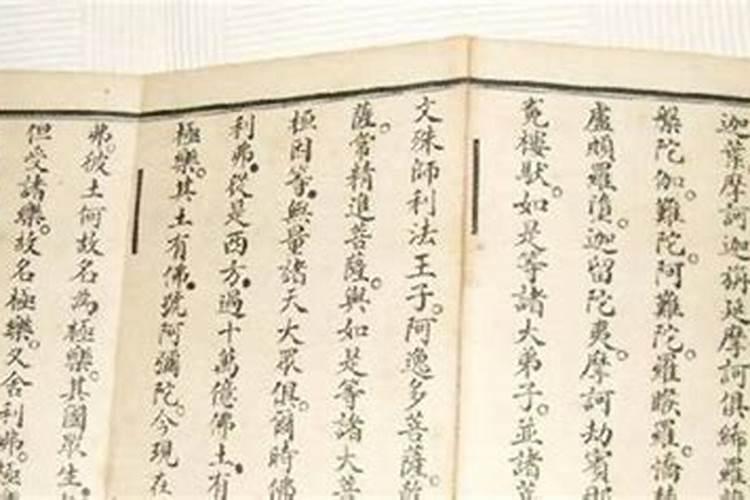 迦葉摩訶迦旃延摩訶俱絺羅
槃陀伽。難陀。阿難陀。羅睺羅。憍
盧頗羅墮。迦留陀夷。摩訶劫賓那
䆓樓馱。如是等諸大弟子。並諸菩
文殊師利法王子。阿逸多菩薩。乾
薩。常精進菩薩。與如是等諸大菩
桓因等。無量諸天大眾俱。爾時佛
利弗。從是西方。過十萬億佛土。有
極樂。其土有佛。號阿彌陀。今現在
弗。彼土何故名為極樂。其國眾生。
但受諸樂。故名極樂。又舍利弗。極